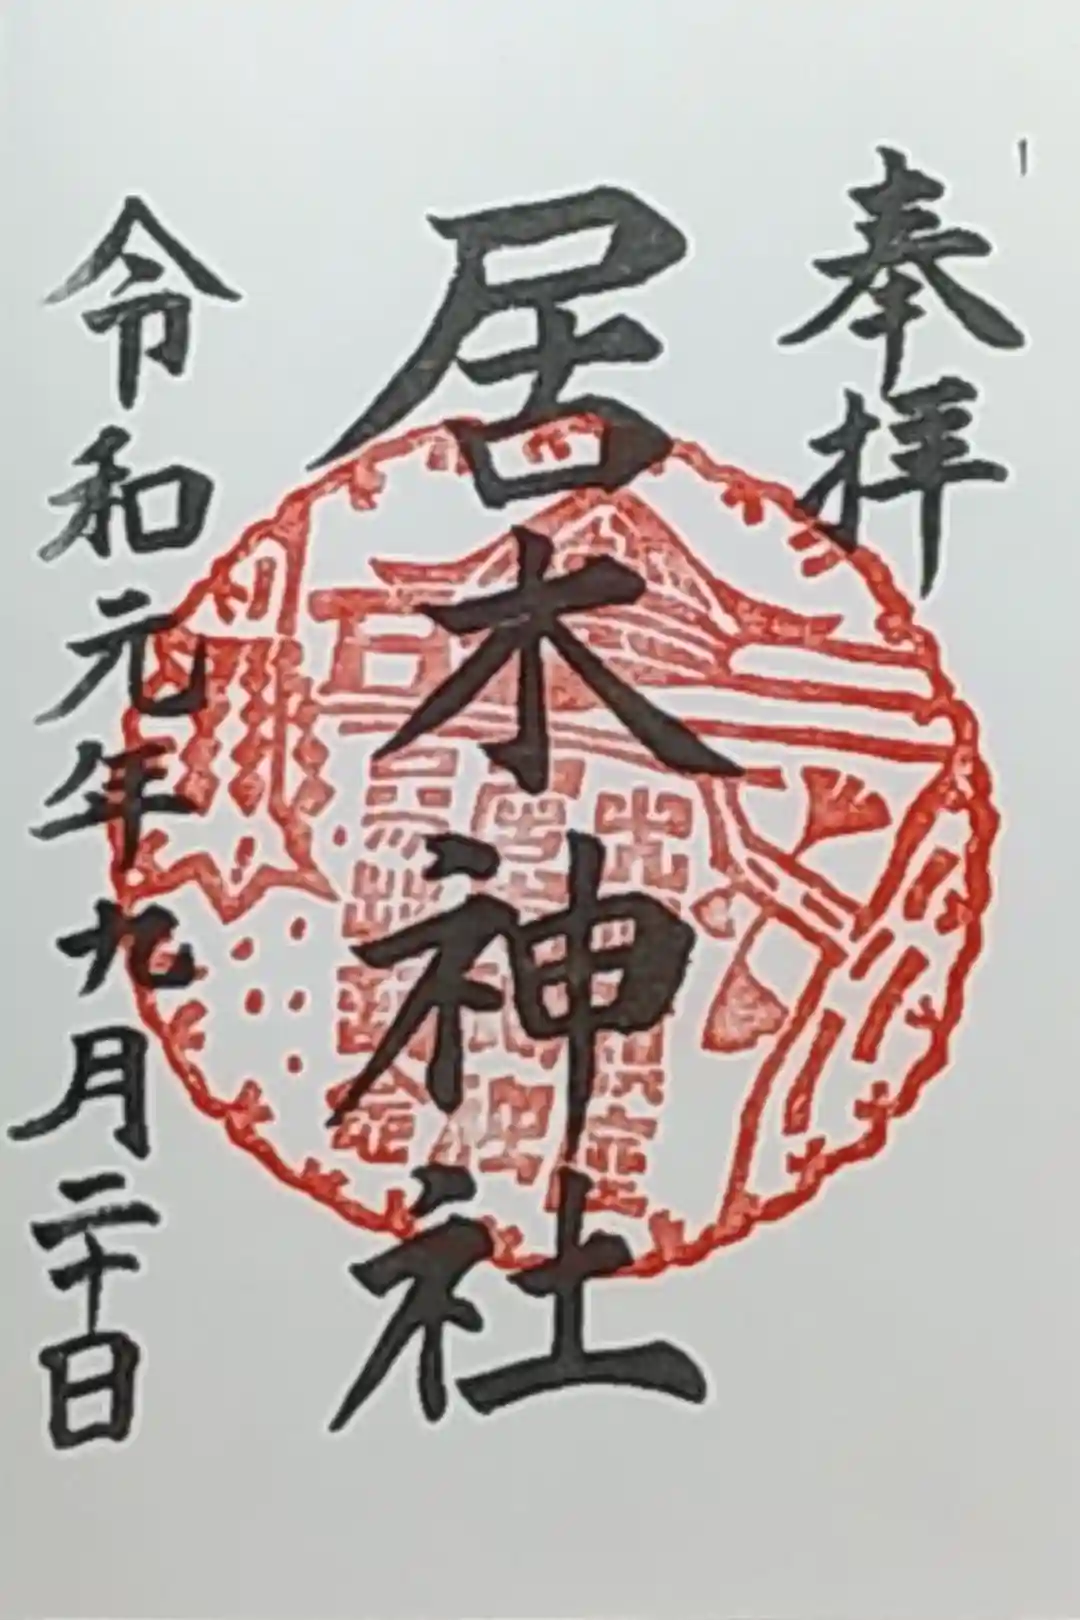 奉拝
居木神社
令和元年九月二十日